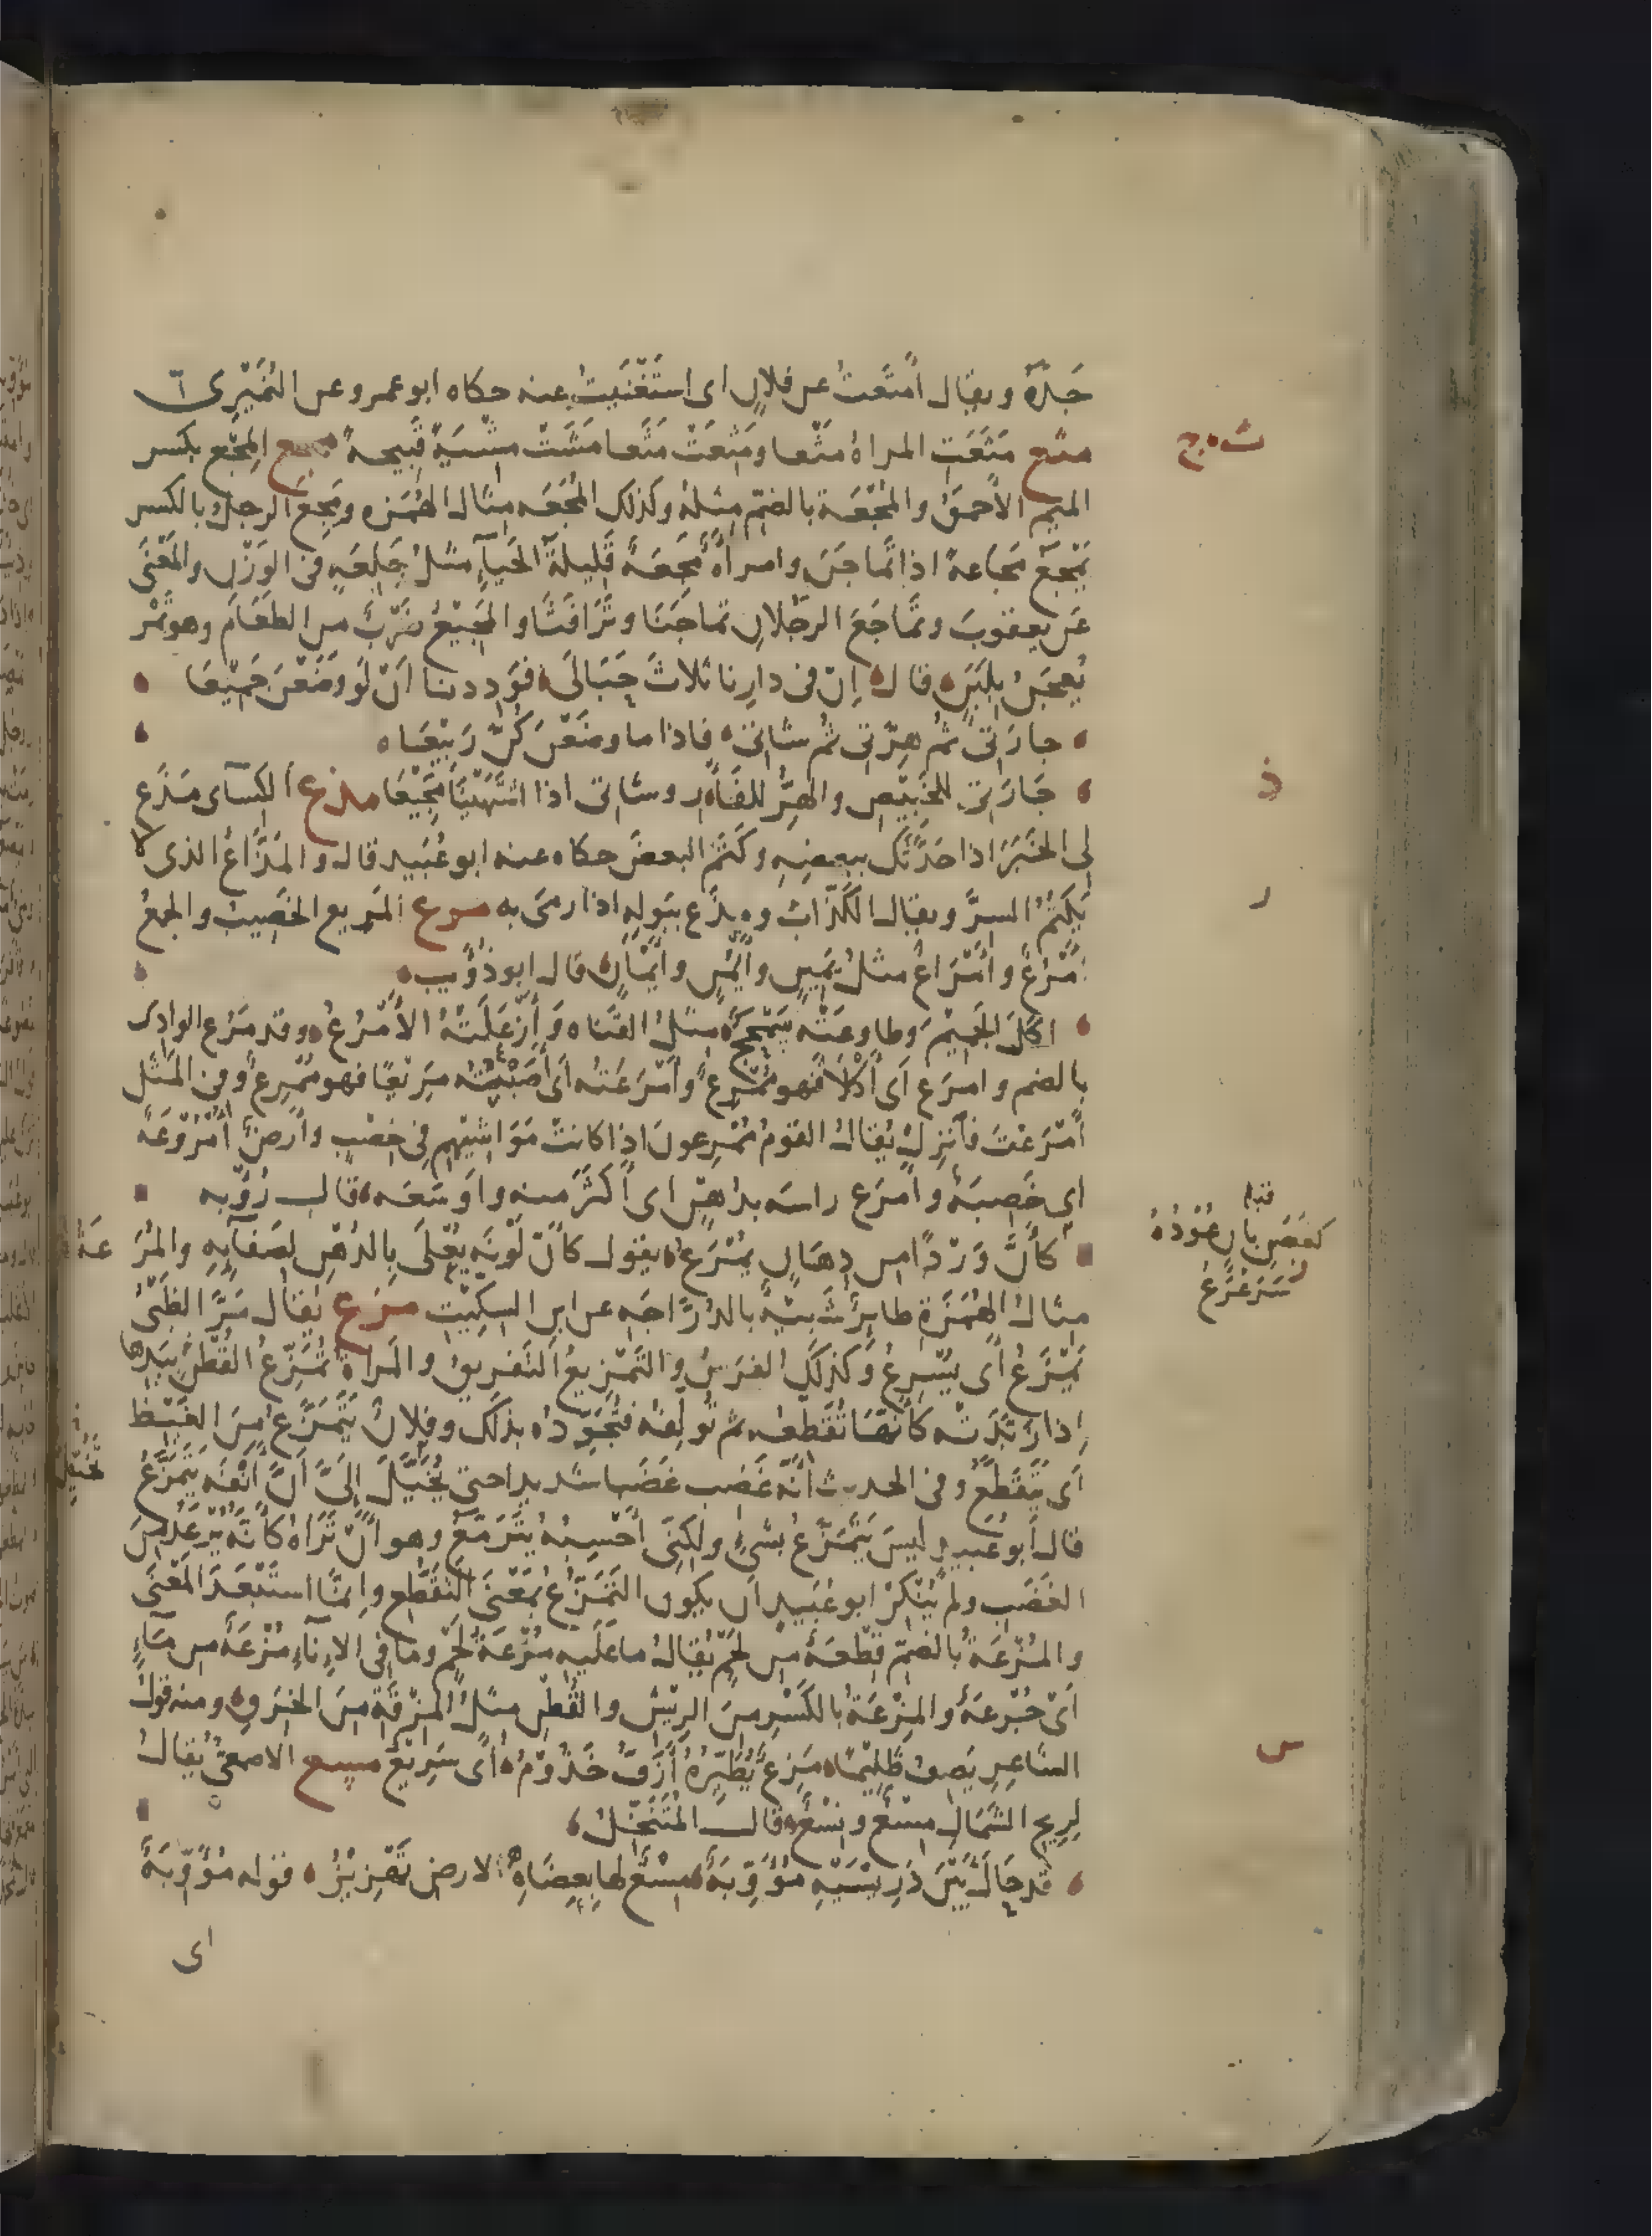 جَدّهُ ويقال أمتَعْتُ عن فلانٍ اى استَغْنَيتُ عنه حكاه ابو عمرو عن النُمَيْرِى
مثع مَثَعَتِ المراةُ مَثْعا ومَثِعَتْ مَثَعا مَشَتْ مِشْيَةً قَبِيحةً مجع المِجْع بكسر
ث ج
الميم الأحمقُ والمُجْعَة بالضمّ مِثلهُ وكذلك المُجَعَه مثال الهُمَزه ومَجِعَ الرجلُ بالكسر
يَمْجَعُ مَجَاعةً اذا تَماجَنَ وامرأةٌ مَجِعَةٌ قَلِيلةُ الحَيآءِ مثلُ جَلِعَةٍ فى الوَزْنِ والمَعْنَى
عَن يعقوبَ وتَماجَعَ الرجُلانِ تماجَنَا وتَرَافَثَا والمَجِيْعُ ضَرْبٌ من الطعَامِ وهو تَمْر
يُعجَنُ بِلَبَنٍ قال إنّ فى دارِنا ثلاثَ حَبَالَى فوَدِدنا أنْ لَو وَضَعْنَ جَمِيْعَا
جارَتى ثم هِرّتى ثم شاتى فاذا ما وضَعْنَ كُنّ رَبِيْعَا
جَارَتى للخَبِيْصِ والهِرُّ للفَأر وشاتى اذا اشتَهَيْنَا مَجِيْعَا مذع الكسآى مَذَع
ذ
لى الخَبَرَ اذا حَدّثَك ببعضِهِ وكَتَم البعضَ حكاه عنه ابو عُبَيد قال والمَذّاعُ الذى لا
يَكتُمُ السرَّ ويقال الكَذّابُ ومذَع ببَولِهِ اذا رمَى به مرع المَريع الخَصِيبُ والجمعُ
ر
أَمْرُعٌ وأَمْرَاعٌ مثلُ يَمِينٍ وأَيْمُنٍ وأَيْمَانٍ قال ابو ذؤيب
اكَلَ الجَمِيْمَ وطاوعَتْه سَمْحَجٌ مِثلُ القَنَاه وأَزعَلَتْهُ الأَمْرُعُ وقد مَرُع الوادِى
بالضم وامرَع اى أَكْلَأَ فهو مُمْرِعٌ وأَمْرَعْتُه اى أَصَبْتُه مَرِيعًا فهو مُمْرِعٌ وفى المَثَل
أَمْرَعْتَ فَانْزِلْ يُقالُ القَومُ مُمْرِعونَ اذا كانتْ مَوَاشيهِم فى خِصْبٍ وأرضٌ أُمْرُوْعَةٌ
اى خَصِبَةٌ وأمرَع راسَه بدُهنٍ اى أَكثَرَ منه واَوْسَعَه قال رُؤبه
كأنّ وَرْدًا من دِهانٍ يُمْرَعُ يقول كأنّ لَوْنَه يُعْلَى بِالدُهنِ لِصَفآيِهِ والمُرَ عَةُ
قبله
كغصنِ بانٍ عُوْدُهُ
سَرَعْرَعُ
مِثالُ الهُمَزَةِ طايِرٌ شَبِيهٌ بالدُرّاجَه عن ابن السِكِيّت مزع يُقال مَرَّ الظَبْىُ
يَمْزَعُ أى يُسْرِعُ وكذلك الفرَسُ والتَمْزِيعُ التَفريقُ والمَراةُ تُمَزِّعُ القُطْنَ بيَدِها
إذا زَبّدَتْه كأنها تُقَطّعُه ثم تُولّفُه فتُجَوِّدُه بذلك وفلانٌ يَتَمَزّعُ مِنَ الغَيْظ
اى يَتَقَطّعُ وفى الحديث أنّه غَضِب غضَبا شديدا حتى يُخَيّلَ إلَىّ أنّ أَنْفَه يَتَمَزّعُ
تخيّل
قال أبو عُبيد ليسَ يَتَمَزّعُ بشىءٍ ولكنّى أَحْسِبُهُ يَتَرَمّعُ وهو أنْ تَرَاهُ كأنّه يُرْعَدُ من
الغَضَبِ ولم يُنْكِرْ ابو عُبَيدٍ ان يكون التَمَزّعُ بمَعْنَى التَقَطُّعِ وانّما استَبْعَدَ المَعْنَى
والمُزْعَةُ بالضمّ قِطعَةٌ مِن لَحْمٍ يُقالُ ما عَلَيه مُزْعَةُ لَحْمٍ وما فى الإنآءِ مُزْعَةٌ من مَآءٍ
اى جُرْعَةٌ والمِزْعَةُ بالكَسْرِ مِنَ الرِيْشِ والقُطْنِ مثلُ المِزْقَةِ مِنَ الخِرَقِ ومنه قولُ
الشاعِرِ يَصِفُ ظَلِيْمًا مِزَعٌ يُطَيّرُهُ أَزَفُّ خَذُوْمُ اى سَرِيْعٌ مسع الاصمعىُّ يُقالُ
س
لِرِيحِ الشَمالِ مِسْعٌ ونِسْعٌ قال المُتَنَخّلُ
قد حالَ بَيْنَ دَرِيسَيْهِ مُؤَوِّبَةٌ مِسْعٌ لها بعِضَاهِ الارضِ تَهْزِيْزُ قوله مُؤَوِّبَةٌ
اى